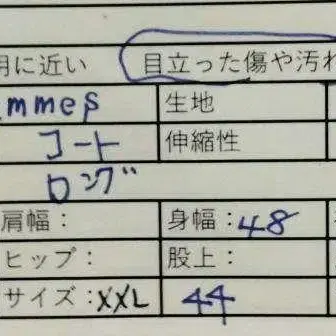 月に近い 目立った傷や汚れ
mmes 生地
コート 伸縮性
ロング
肩幅： 身幅：48
ヒップ： 股上：
サイズ：XXL 44